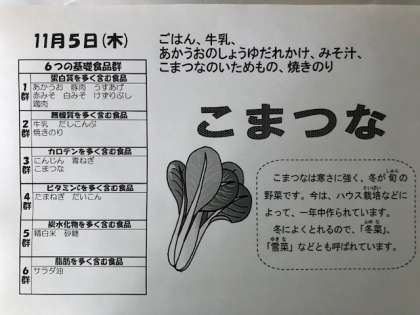 11月5日(木)
ごはん、牛乳、
あかうおのしょうゆだれかけ、みそ汁、
こまつなのいためもの、焼きのり
6つの基礎食品群
1群
蛋白質を多く含む食品
あかうお 豚肉 うすあげ
赤みそ 白みそ けずりぶし
鶏肉
2群
無機質を多く含む食品
牛乳 だしこんぶ
焼きのり
3群
カロテンを多く含む食品
にんじん 青ねぎ
こまつな
4群
ビタミンCを多く含む食品
たまねぎ だいこん
5群
炭水化物を多く含む食品
精白米 砂糖
6群
脂肪を多く含む食品
サラダ油
こまつな
こまつなは寒さに強く、冬が旬の
野菜です。今は、ハウス栽培などに
よって、一年中作られています。
冬によくとれるので、「冬菜」、
「雪菜」などとも呼ばれています。